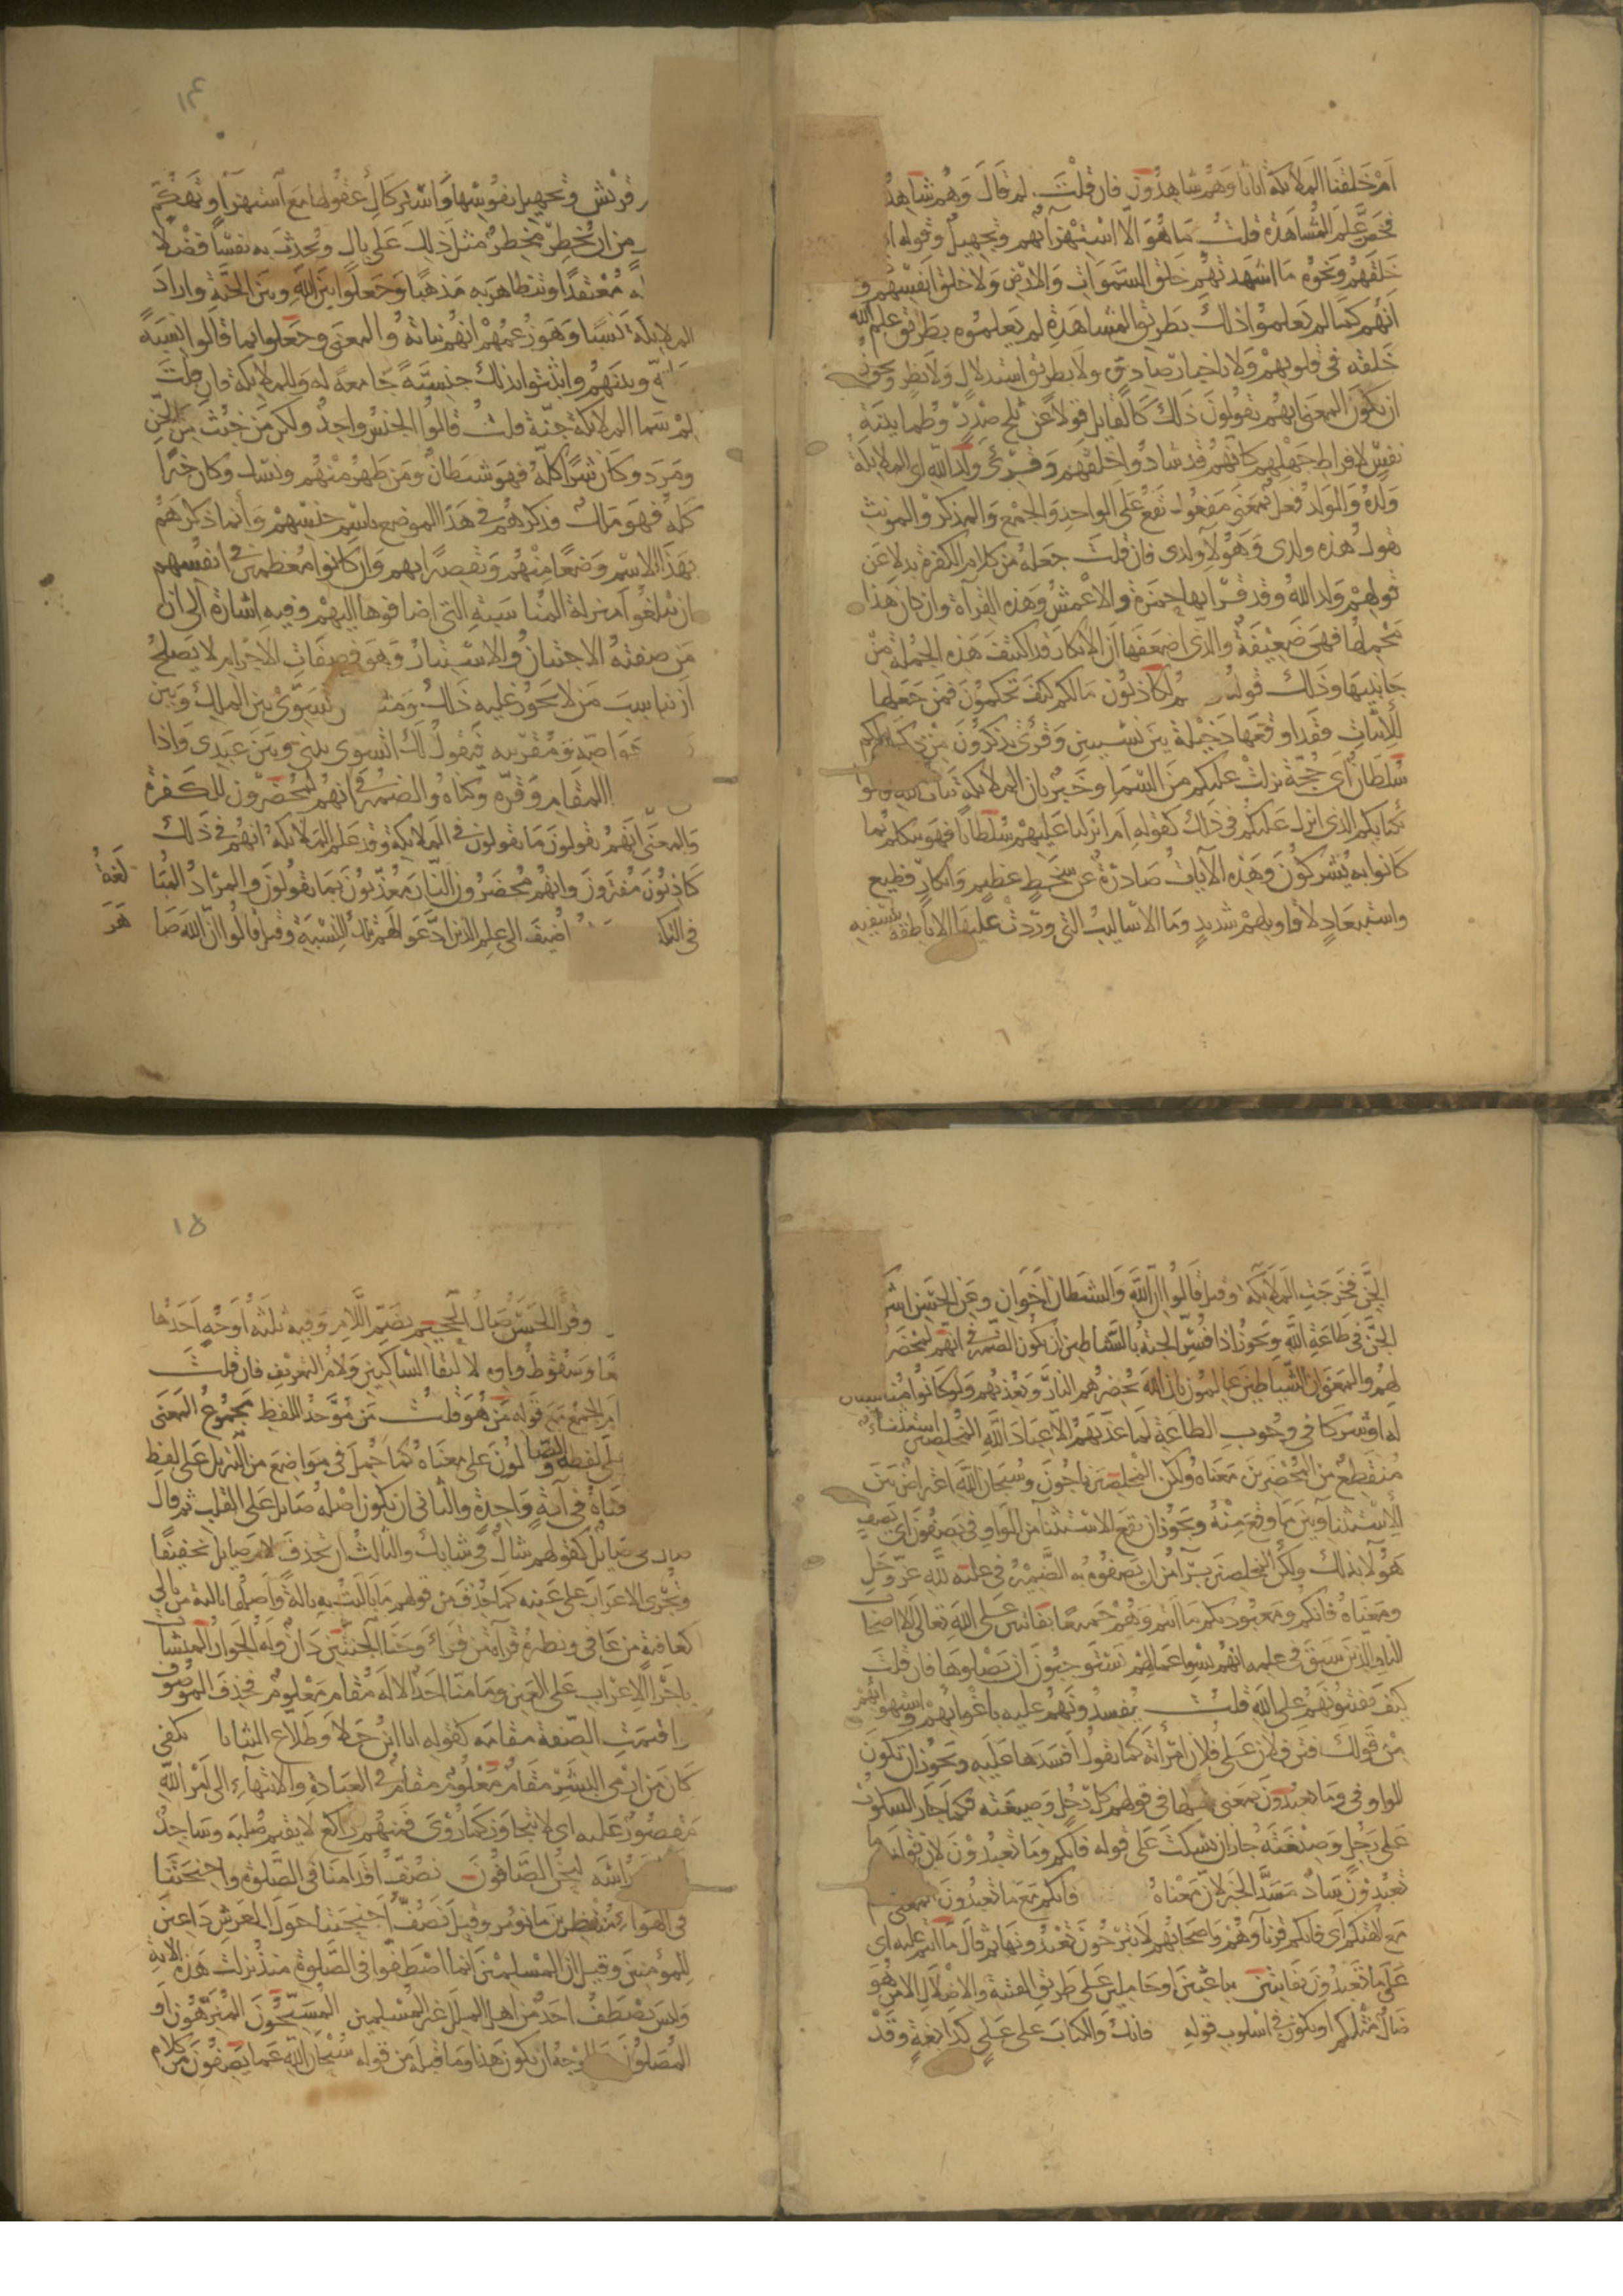 ام خلقنا الملائكة اناثا وهم شاهدون فان قلت لم قال وهم شاهدون
فخص علم المشاهدة قلت ما هو الا استهزاء بهم وتجهيل وقوله
خلقهم ونحوه ما اشهدتهم خلق السموات والارض ولا خلق انفسهم و
انهم كما لم يعلموا ذلك بطريق المشاهدة لم يعلموه بطريق علم الله
خلقه في قلوبهم ولا باخبار صادق ولا بطريق استدلال ولا نظر ويجوز
ان يكون المعنى انهم يقولون ذلك كالقايل قولا عن ثلج صدر وطمانينة
نفس لافراط جهلهم كانهم قد شاهدوا خلقهم وقرئ ولد الله اى الملائكة
ولده والولد فعل بمعنى مفعول تقع على الواحد والجمع والمذكر والمونث
تقول هذه ولدى وهؤلاء ولدى فان قلت جعله من كلام الكفرة بدلا عن
قولهم ولد الله وقد قرا بها حمزة والاعمش وهذه القراة وان كان هذا
محملها فهى ضعيفة والذى اضعفها ان الانكار قد اكتنف هذه الجملة من
جانبيها وذلك قوله لكاذبون مالكم كيف تحكمون فمن جعلها
للاثبات فقد اوقعها دخيلة بين نسيبين وقرئ تذكرون من ذكر ام لكم
سلطان اى حجة نزلت عليكم من السما وخبر بان الملائكة بنات الله
بكتابكم الذى انزل عليكم في ذلك كقوله ام انزلنا عليهم سلطانا فهو يتكلم بما
كانوا به يشركون وهذه الايات صادرة عن سخط عظيم وانكار فظيع
واستبعاد لاقاويلهم شديد وما الاساليب التى وردت عليها الا ناطقة بتسفيه
١٤
قريش وتجهيل نفوسها واستركاك عقولها مع استهزاء وتهكم
من ان يخطر مخطر مثل ذلك على بال ويحدث به نفسا فضلا
معتقدا وتتظاهر به مذهبا وجعلوا بين الله وبين الجنة واراد
الملائكة نسبا وهو زعمهم انهم بناته والمعنى وجعلوا بما قالوا نسبة
وبينهم واثبتوا بذلك جنسية جامعة له وللملائكة فان قلت
لم سما الملائكة جنة قلت قالوا الجنس واحد ولكن من خبث من الجن
ومرد وكان شرا كله فهو شيطان ومن طهر منهم ونسك وكان خيرا
كله فهو ملك فذكرهم في هذا الموضع باسم جنسهم وانما ذكرهم
بهذا الاسم وضعا منهم وتقصيرا بهم وان كانوا معظمين في انفسهم
ان يبلغوا منزلة المناسبة التى اضافوها اليهم وفيه اشارة الى ان
من صفته الاجتنان والاستتار وهو من صفات الاجرام لا يصلح
ان يناسب من لا يجوز عليه ذلك تسوى بين الملك وبين
خواصه ومقربيه فيقول لك اتسوى بينى وبين عبدى واذا
المقام وقره وكناه والضمير في انهم لمحضرون للكفرة
والمعنى انهم يقولون ما يقولون في الملائكة وقد علم الملائكة انهم في ذلك
كاذبون مفترون وانهم محضرون النار معذبون بما يقولون والمراد المبالغة
في التك اضيف الى علم الذين ادعوا لهم تلك النسبة وقيل قالوا ان الله صاهر
الجن فخرجت الملائكة وقيل قالوا ان الله والشيطان اخوان وعن الحسن اشر
الجن في طاعة الله ويجوز اذا فسر الجنة بالشياطين ان يكون الضمير في انهم لمحضر
لهم والمعنى ان الشياطين عالمون بان الله يحضرهم النار ويعذبهم ولو كانوا مناسبين
له او شركا في وجوب الطاعة لما عذبهم الا عباد الله المخلصين استثناء
منقطع من المحضرين معناه ولكن المخلصين ناجون وسبحان الله اعتراض بين
الاستثنا وبين ما وقع منه ويجوز ان يقع الاستثنا من الواو في يصفون اى يصف
هؤلا بذلك ولكن المخلصين برآء من ان يصفوه به الضمير في عليه لله عز وجل
ومعناه فانكم ومعبوديكم ما انتم وهم جميعا بفاتنين على الله تعالى الا اصحاب
النار الذين سبق في علمه انهم بسوء اعمالهم يستوجبون ان يصلوها فان قلت
كيف يفتنونهم على الله قلت يفسدونهم عليه باغوائهم واستهوائهم
من قولك فتن فلان على فلان امراته كما تقول افسدها عليه ويجوز ان تكون
الواو في وما تعبدون بمعنى مثلها في قولهم كل رجل وضيعته فكما جاز السكوت
على رجل وضيعته جاز ان يسكت على قوله فانكم وما تعبدون لان قوله وما
تعبدون ساد مسد الخبر لان معناه فانكم مع ما تعبدون
مع الهتكم اى فانكم قرناوهم واصحابهم لا تبرحون تعبدونها ثم قال ما انتم عليه اى
على ما تعبدون بفاتنين بباعثين او حاملين على طريق الفتنة والاضلال الا من هو
ضال مثلكم او يكون في اسلوب قوله فانك والكتاب على على كدابغة وقد
١٥
وقرا الحسن صال الجحيم بضم اللام وفيه ثلثة اوجه احدها
وسقوط واوه لالتقا الساكنين ولام التعريف فان قلت
الجمع مع قوله من هو قلت من موحد اللفظ مجموع المعنى
على لفظه والصالون على معناه كما حمل في مواضع من التنزيل على لفظ
معناه في آية واحدة والثاني ان يكون اصله صايل على القلب ثم قال
في صايل كقولهم شاك في شايك والثالث ان تحذف لام صايل تخفيفا
وتجرى الاعراب على عينه كما حذف من قولهم ما باليت به بالة واصلها بالية من بالى
كعافية من عافى ونظيره قرآة من قرا وجنا الجنتين دان وله الجوار المنشآت
باجرا الاعراب على العين وما منا احد الا له مقام معلوم فحذف الموصوف
واقيمت الصفة مقامه كقوله انا ابن جلا وطلاع الثنايا بكفى
كان من ارمى البشر مقام معلوم مقام في العبادة والانتهاء الى امر الله
مقصور عليه اى لا يتجاوز كما روى فمنهم راكع لا يقيم صلبه وساجد
راسه لنحن الصافون نصف اقدامنا في الصلوة واجنحتنا
في الهواء منتظرين ما نؤمر وقيل نصف اجنحتنا حول العرش داعين
للمؤمنين وقيل ان المسلمين انما اصطفوا في الصلوة منذ نزلت هذه الاية
وليس يصطف احد من اهل الملل غير المسلمين المسبحون المنزهون او
المصلون والوجه ان يكون هذا وما قبله من قوله سبحان الله عما يصفون من كلام